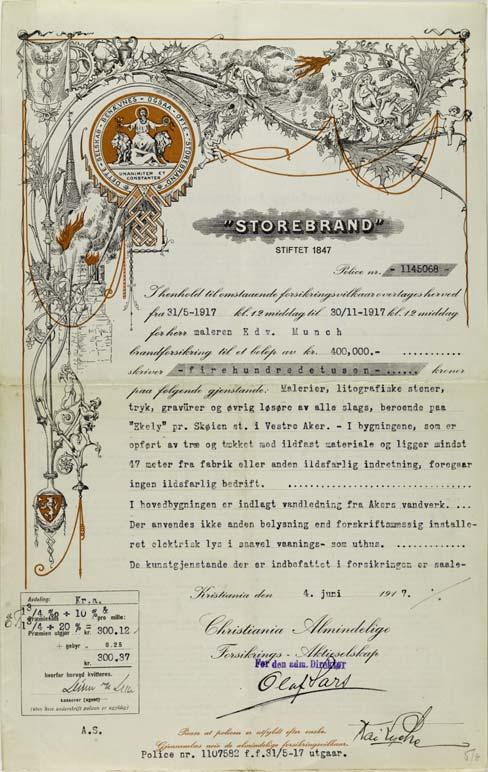 DETTE SELSKAB BENÆVNES OGSAA OFTE "STOREBRAND"
UNANIMITER ET
CONSTANTER
"STOREBRAND"
STIFTET 1847
Police nr. - 1145068 -
I henhold til omstaaende forsikringsvilkaar overtages herved
fra 31/5-1917 kl. 12 middag til 30/11-1917 kl. 12 middag
for herr maleren Edv. Munch
brandforsikring til et beløp av kr. 400,000.- ...........
skriver -firehundredetusen-...... kroner
paa følgende gjenstande: Malerier, litografiske stener,
tryk, gravürer og øvrig løsøre av alle slags, beroende paa
"Ekely" pr. Skøien st. i Vestre Aker. - I bygningene, som er
opført av træ og tækket med ildfast materiale og ligger mindst
47 meter fra fabrik eller anden ildsfarlig indretning, foregaar
ingen ildsfarlig bedrift. ..................
I hovedbygningen er indlagt vandledning fra Akers vandverk. ...
Der anvendes ikke anden belysning end forskriftsmæssig installe-
ret elektrisk lys i saavel vaanings- som uthus. ............
De kunstgjenstande der er indbefattet i forsikringen er saale-
Kristiania den 4. juni 1917.
Avdeling: Kr.a.
1 3/4 %o + 10 %
pro mille:
1/4 + 20 % =
Præmien utgjør kr. 300.12
+ gebyr " 0.25
kr. 300.37
hvorfor herved kvitteres.
kasserer (agent)
(uten hans underskrift polisen er ugyldig)
Christiania Almindelige
Forsikrings-Aktieselskap
For den adm. Direktør
Olaf Lars
A.S.
Paase at policen er utfyldt efter ønske.
Gjennemlæs nøie de almindelige forsikringsvilkaar.
Police nr. 1107582 f.f.31/5-17 utgaar.